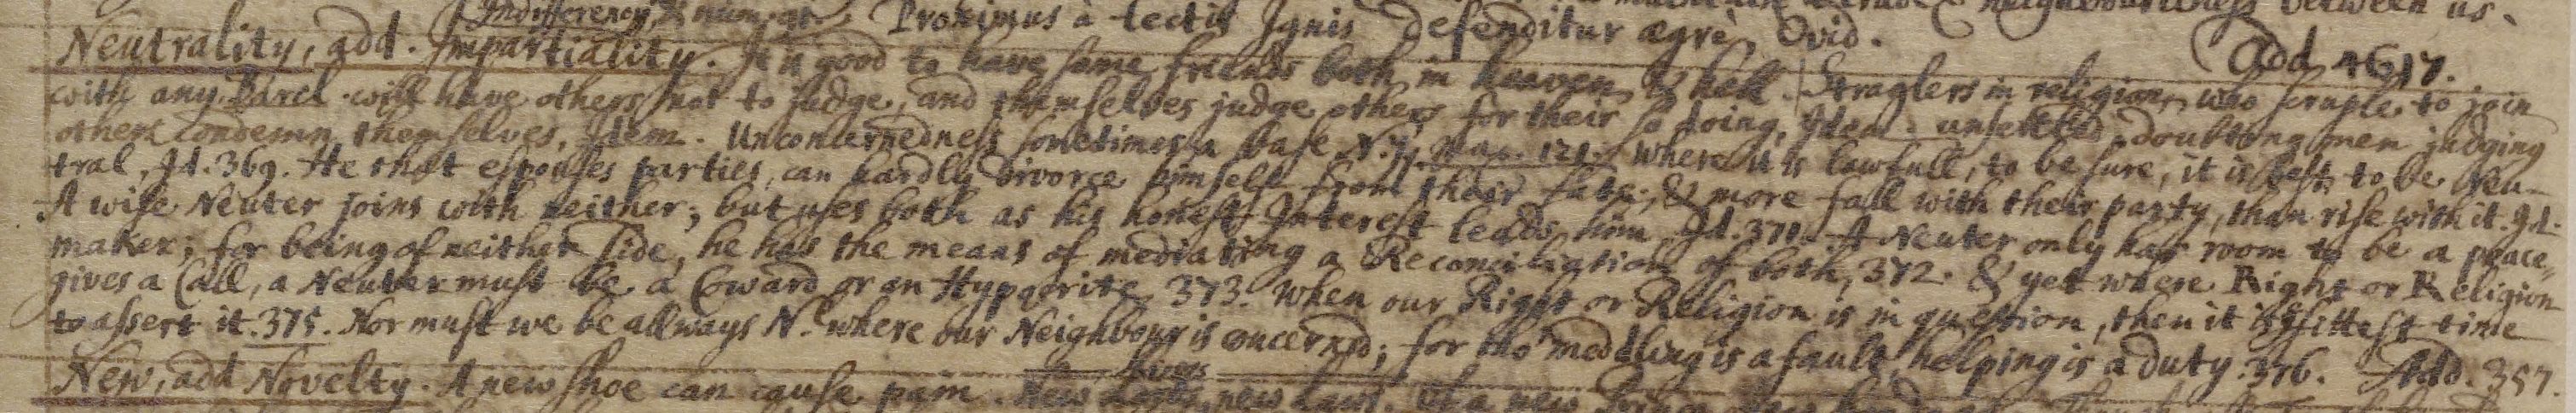 Proximus à tectis Ignis defenditur ægrè, Ovid.
Indifferency, & num. 98 Add 4617.
Neutrality, add. Impartiality. It is good to have some friends both in heaven & hell. Straglers in religion, who scruple to join
with any Parcl. will have others not to judge, and themselves judge others for their so doing, Idem. unsettled, doubting men judging
others condemn themselves, Idem. Unconcernedness sometimes a base N.ty. Max. 121. Where it is lawfull, to be sure, it is best to be Neu-
tral, Id. 369. He that espouses parties, can hardly divorce himself from their fate; & more fall with their party, than rise with it. Id.
A wise Neuter joins with neither; but uses both as his honest Interest leads him, Id. 371. A Neuter only has room to be a peace-
maker; for being of neither side, he has the means of mediating a Reconciliation of both, 372. & yet where Right or Religion
gives a Call, a Neuter must be a Coward or an Hypocrite, 373. When our Right or Religion is in question, then it is fittest time
to assert it. 375. Nor must we be allways N. where our Neighbour is concerned; for tho' meddling is a fault, helping is a duty. 376. Add. 357.
New, add Novelty. A new shoe can cause pain. New Lords, new Laws.